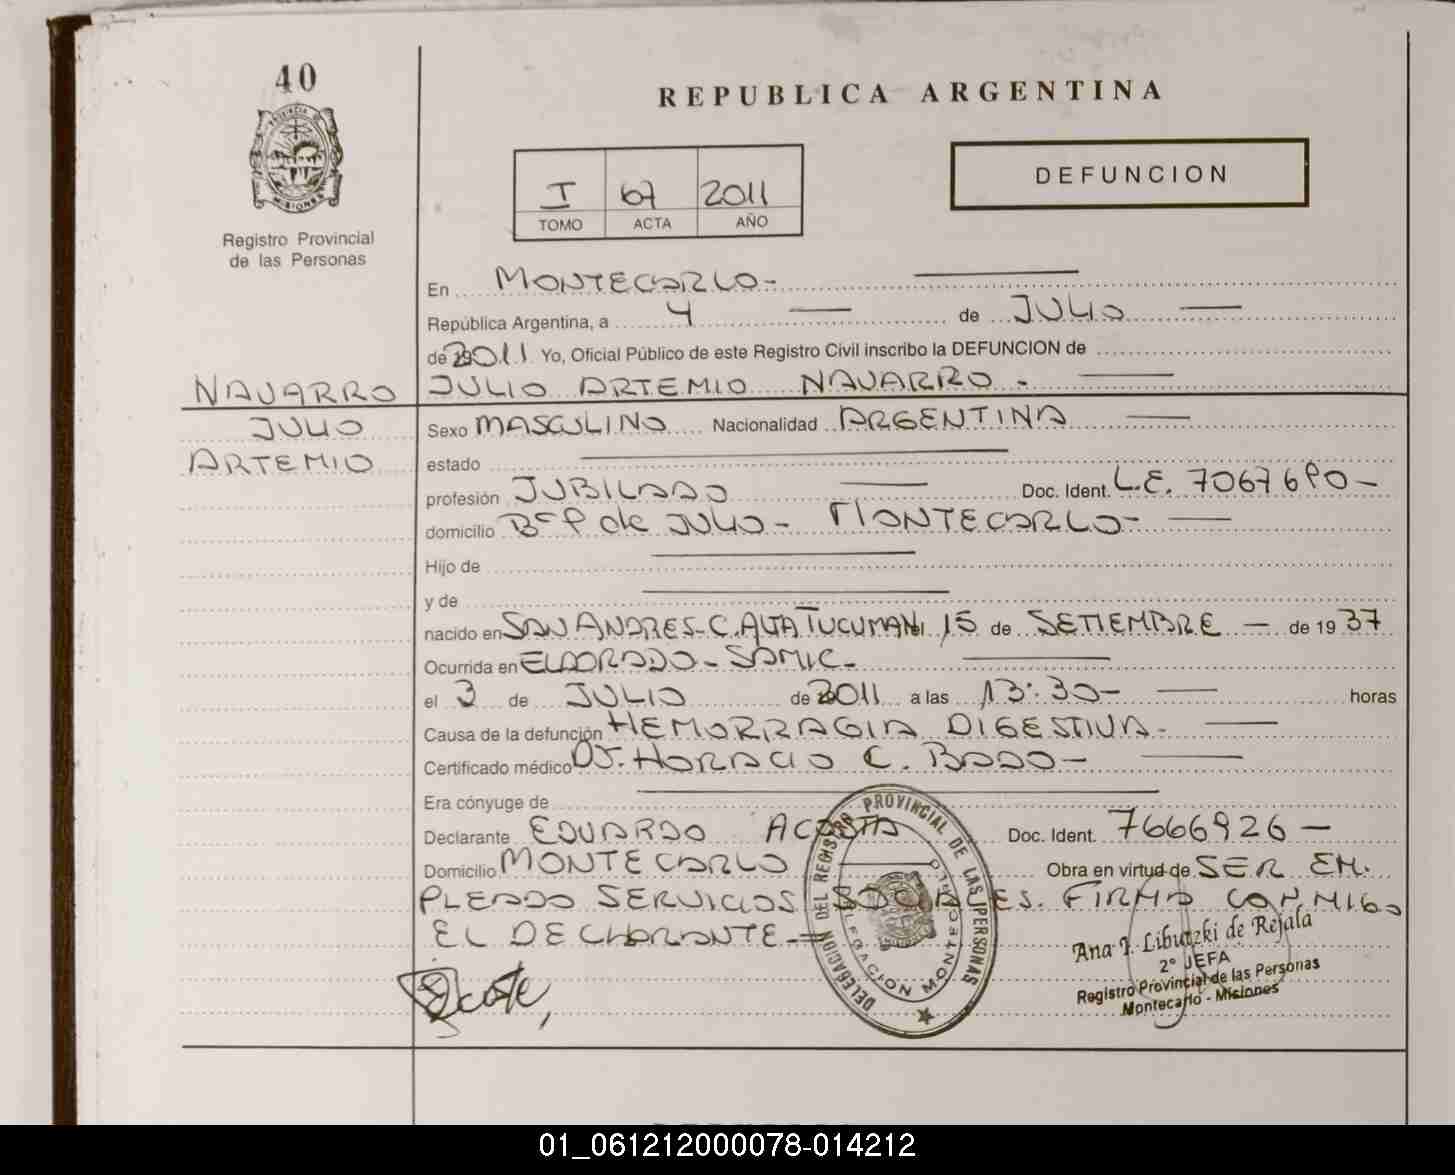 40
REPUBLICA ARGENTINA
PROVINCIA DE MISIONES
Registro Provincial
de las Personas
I 67 2011
TOMO ACTA AÑO
DEFUNCION
En MONTECARLO-
República Argentina, a 4 de JULIO
de 2011 Yo, Oficial Público de este Registro Civil inscribo la DEFUNCION de
NAVARRO JULIO ARTEMIO NAVARRO.
JULIO
ARTEMIO
Sexo MASCULINO Nacionalidad ARGENTINA
estado
profesión JUBILADO Doc. Ident. L.E.
domicilio de JULIO- MONTECARLO-
Hijo de
y de
nacido en SAN ANDRES-C. ALTA TUCUMAN 15 de SETIEMBRE - de 1937
Ocurrida en ELDORADO-SAMIC-
el 3 de JULIO de 2011 a las 13:30- horas
Causa de la defunción HEMORRAGIA DIGESTIVA-
Certificado médico HORACIO C. BADO-
Era cónyuge de
Declarante EDUARDO ACOSTA Doc. Ident. 7666926-
Domicilio MONTECARLO Obra en virtud de SER EM.
PLEADO SERVICIOS SOCIALES. FIRMA CONMIGO
EL DECLARANTE-
Acosta
DELEGACION DEL REGISTRO PROVINCIAL DE LAS PERSONAS
DELEGACION MONTECARLO
Ana I. Libutzki de Rejala
2° JEFA
Registro Provincial de las Personas
Montecarlo - Misiones
01_061212000078-014212